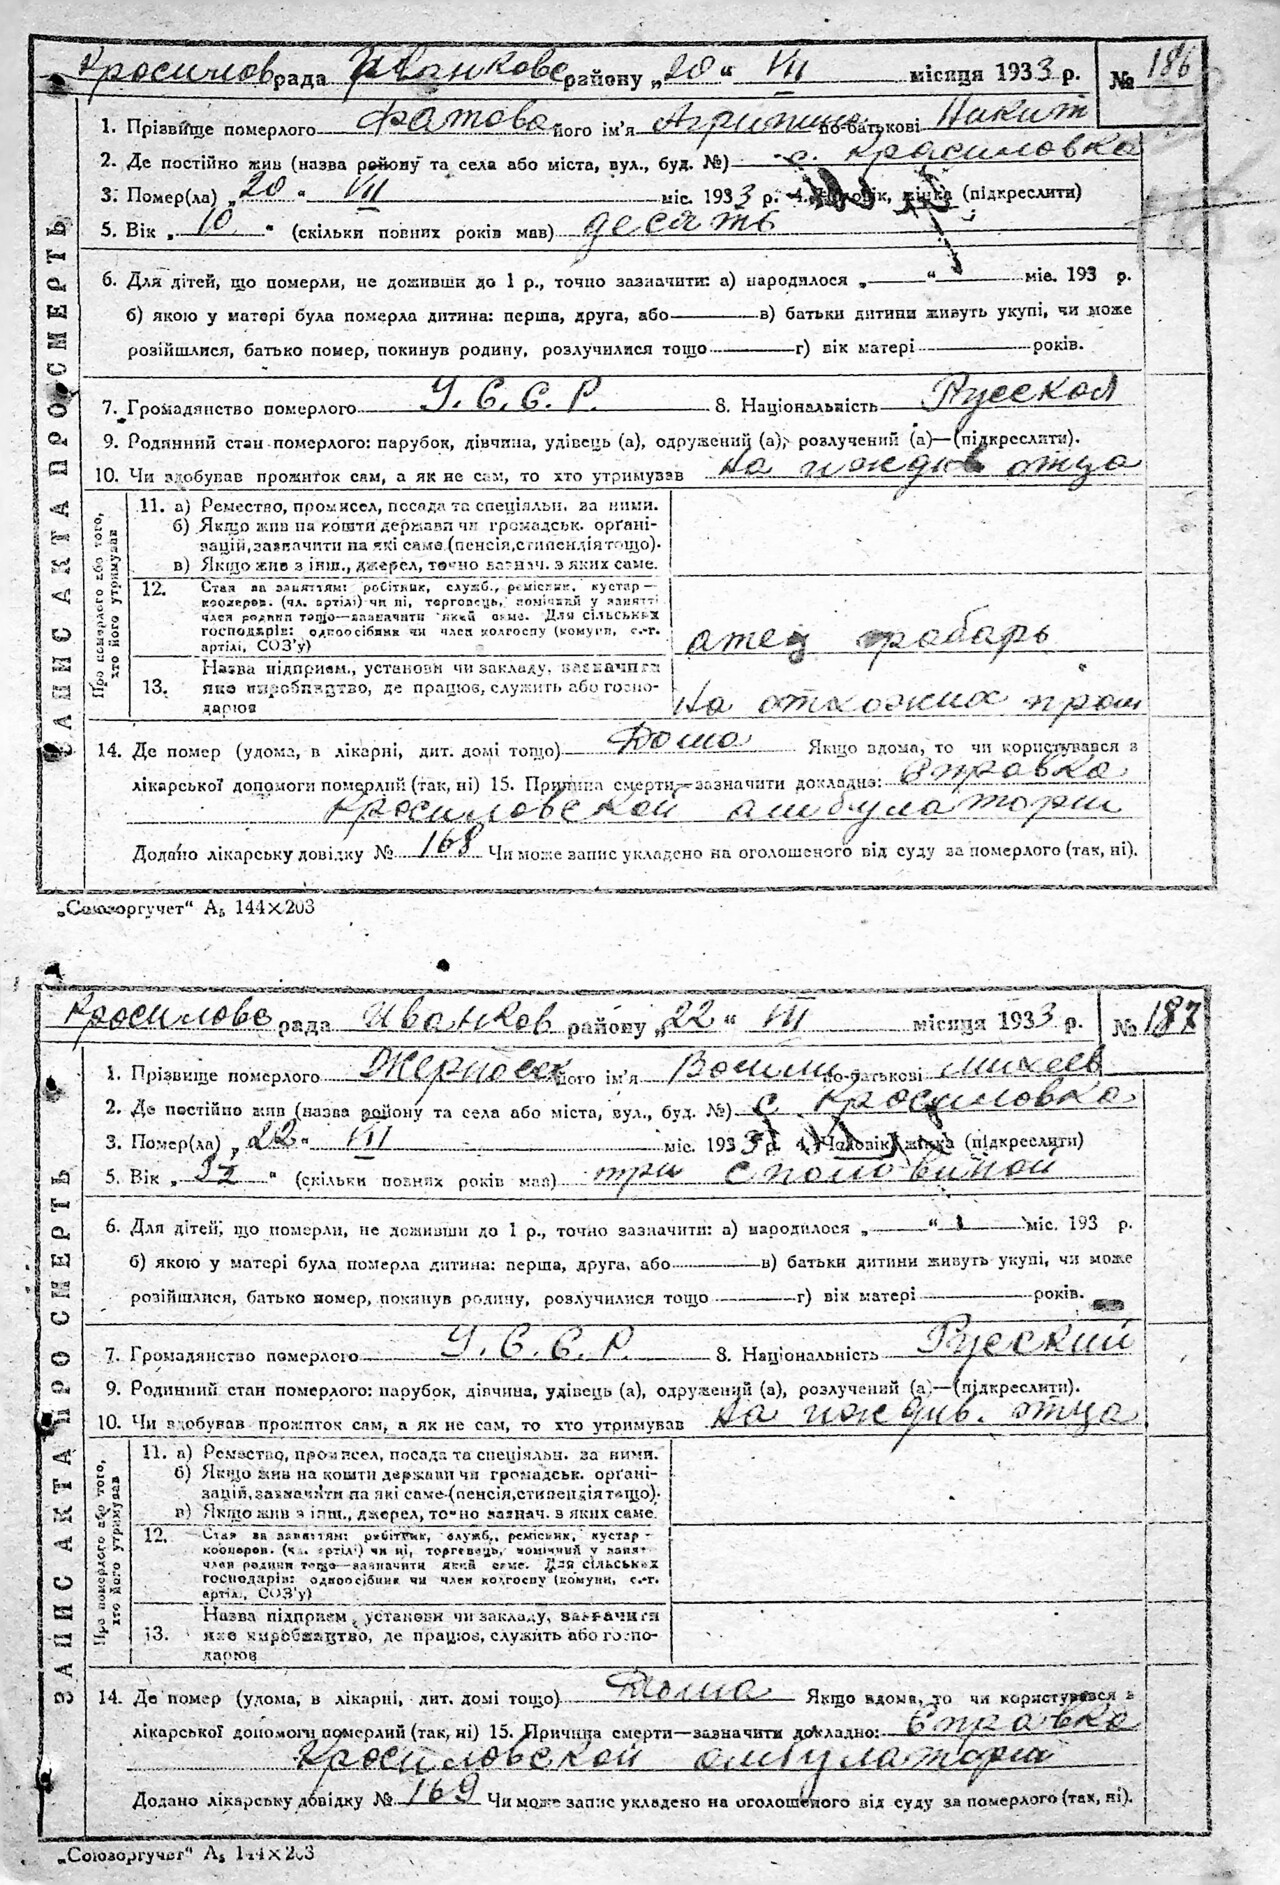 Красилов рада Иванкове району „20“ VII місяця 1933 р. № 186
ЗАПИС АКТА ПРО СМЕРТЬ
1. Прізвище померлого Фатова його ім'я Агрипина по-батькові Никит
2. Де постійно жив (назва району та села або міста, вул., буд. №) с. Красиловка
3. Помер(ла) „20“ VII міс. 1933 р. 4. Чоловік, жінка (підкреслити)
5. Вік „10“ (скільки повних років мав) десять
6. Для дітей, що померли, не доживши до 1 р., точно зазначити: а) народилося „—“ міс. 193 р.
б) якою у матері була померла дитина: перша, друга, або — в) батьки дитини живуть укупі, чи може
розійшлися, батько помер, покинув родину, розлучилися тощо — г) вік матері — років.
7. Громадянство померлого У.С.С.Р. 8. Національність Русская
9. Родинний стан померлого: парубок, дівчина, удівець (а), одружений (а), розлучений (а)—(підкреслити).
10. Чи здобував прожиток сам, а як не сам, то хто утримував на иждив отца
Про померлого або того, хто його утримував
11. а) Ремество, промисел, посада та спеціяльн. за ними.
б) Якщо жив на кошти держави чи громадськ. орґані-
зацій, зазначити на які саме (пенсія, стипендія тощо).
в) Якщо жив з інш., джерел, точно зазнач. з яких саме.
12. Стан за заняттям: робітник, служб., ремісник, кустар—
кооперов. (чл. артілі) чи ні, торговець, помічний у занятті
член родини тощо—зазначити який саме. Для сільських
господарів: одноосібник чи член колгоспу (комуни, с.-г.
артілі, СОЗ'у) атец грабарь
13. Назва підприєм., установи чи закладу, зазначити
яке виробництво, де працює, служить або госпо-
дарює на отхожих пром
14. Де помер (удома, в лікарні, дит. домі тощо) Дома Якщо вдома, то чи користувався з
лікарської допомоги померлий (так, ні) 15. Причина смерти—зазначити докладно: Справка
Красиловской амбулатории
Додано лікарську довідку № 168 Чи може запис укладено на оголошеного від суду за померлого (так, ні).
„Союзоргучет“ А5 144×203
Красиловс рада Иванков району „22“ VII місяця 1933 р. № 187
ЗАПИС АКТА ПРО СМЕРТЬ
1. Прізвище померлого його ім'я Васили по-батькові Михеев
2. Де постійно жив (назва району та села або міста, вул., буд. №) с Красиловка
3. Помер(ла) „22“ VII міс. 1933 р. 4. Чоловік, жінка (підкреслити)
5. Вік (скільки повних років мав) три с половиной
6. Для дітей, що померли, не доживши до 1 р., точно зазначити: а) народилося „—“ міс. 193 р.
б) якою у матері була померла дитина: перша, друга, або — в) батьки дитини живуть укупі, чи може
розійшлися, батько помер, покинув родину, розлучилися тощо — г) вік матері — років.
7. Громадянство померлого У.С.С.Р. 8. Національність Русский
9. Родинний стан померлого: парубок, дівчина, удівець (а), одружений (а), розлучений (а)—(підкреслити).
10. Чи здобував прожиток сам, а як не сам, то хто утримував на иждив. отца
Про померлого або того, хто його утримував
11. а) Ремество, промисел, посада та спеціяльн. за ними.
б) Якщо жив на кошти держави чи громадськ. орґані-
зацій, зазначити на які саме (пенсія, стипендія тощо).
в) Якщо жив з інш., джерел, точно зазнач. з яких саме.
12. Стан за заняттям: робітник, служб., ремісник, кустар—
кооперов. (чл. артілі) чи ні, торговець, помічний у занят.
член родини тощо—зазначити який саме. Для сільських
господарів: одноосібник чи член колгоспу (комуни, с.-г.
артілі, СОЗ'у)
13. Назва підприєм., установи чи закладу, зазначити
яке виробництво, де працює, служить або госпо-
дарює
14. Де помер (удома, в лікарні, дит. домі тощо) Дома Якщо вдома, то чи користувався з
лікарської допомоги померлий (так, ні) 15. Причина смерти—зазначити докладно: Справка
Красиловской амбулатории
Додано лікарську довідку № 169 Чи може запис укладено на оголошеного від суду за померлого (так, ні).
„Союзоргучет“ А5 144×203